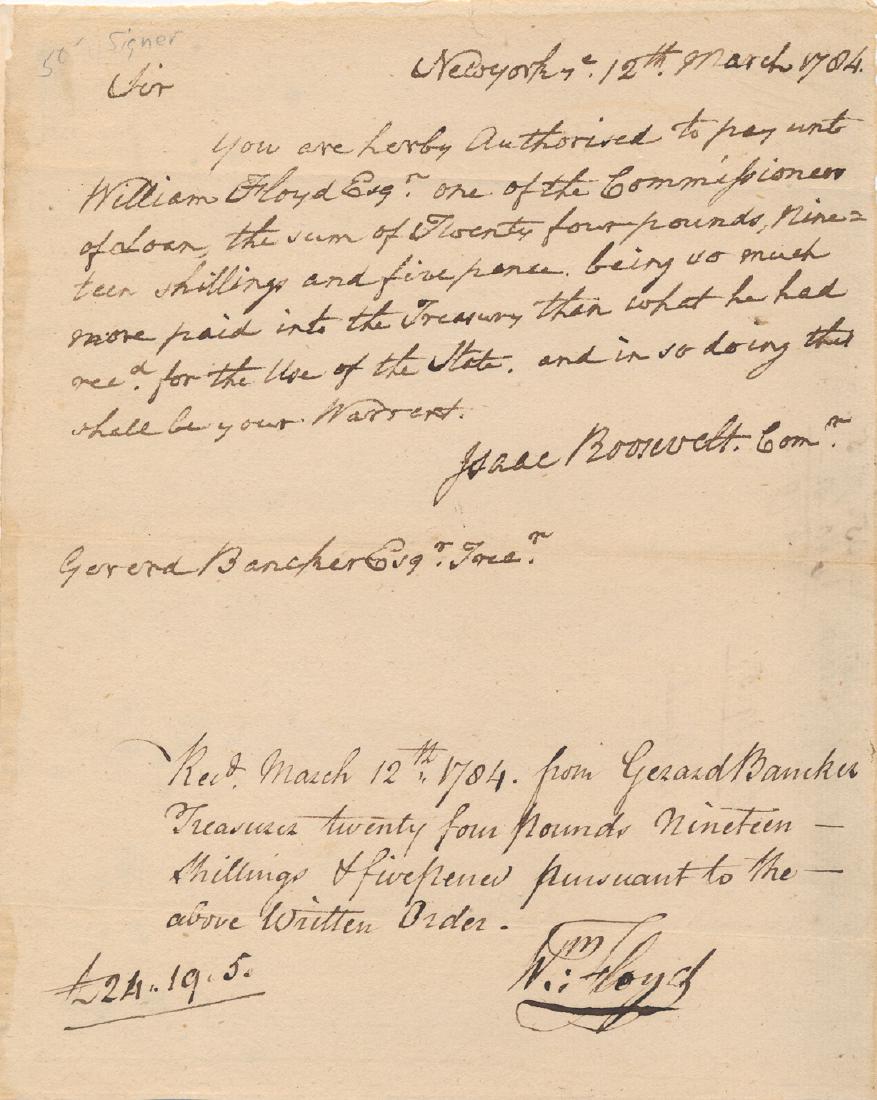 Signer
Newyork ye. 12th. March 1784.
Sir
You are herby Authorised to pay unto
William Floyd Esqr. one of the Commissioners
of Loan, the sum of Twenty four pounds, Nine=
teen shillings and five pence. being so much
more paid into the Treasury than what he had
recd. for the Use of the State. and in so doing this
shall be your Warrent.
Isaac Roosevelt. Comr.
Gererd Bancker Esqr. Trear.
Recd. March 12th. 1784. from Gerard Bancker
Treasurer twenty four pounds Nineteen —
Shillings & five pence pursuant to the —
above Written Order.
£24.19.5.
Wm: Floyd